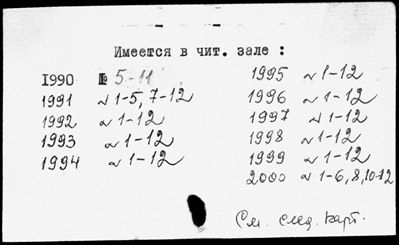 Имеется в чит. зале :
1990 № 5-11
1991 № 1-5, 7-12
1992 № 1-12
1993 № 1-12
1994 № 1-12
1995 № 1-12
1996 № 1-12
1997 № 1-12
1998 № 1-12
1999 № 1-12
2000 № 1-6, 8, 10-12
См. след. карт.